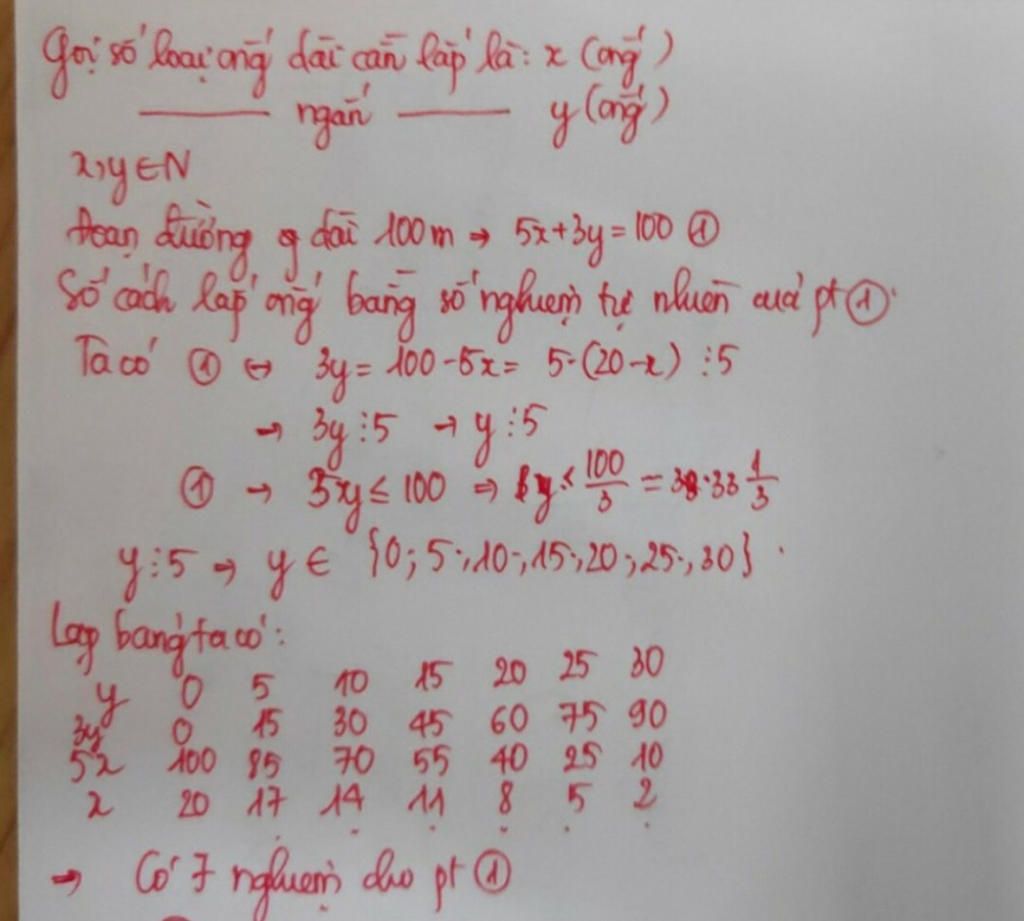 Gọi số loại ống dài cần lắp là: x (ống)
——— ngắn ——— y (ống)
x,y ∈ N
Đoạn đường g dài 100m → 5x+3y=100 ①
Số cách lắp ống bằng số nghiệm tự nhiên của pt ①.
Ta có ① ↔ 3y = 100 - 5x = 5·(20-x) ⋮5
→ 3y⋮5 → y⋮5
① → 3y ≤ 100 → y ≤ 100/3 = 33 1/3
y⋮5 → y ∈ {0; 5; 10; 15; 20; 25; 30}.
Lập bảng ta có:
y 0 5 10 15 20 25 30
3y 0 15 30 45 60 75 90
5x 100 85 70 55 40 25 10
x 20 17 14 11 8 5 2
→ Có 7 nghiệm cho pt ①